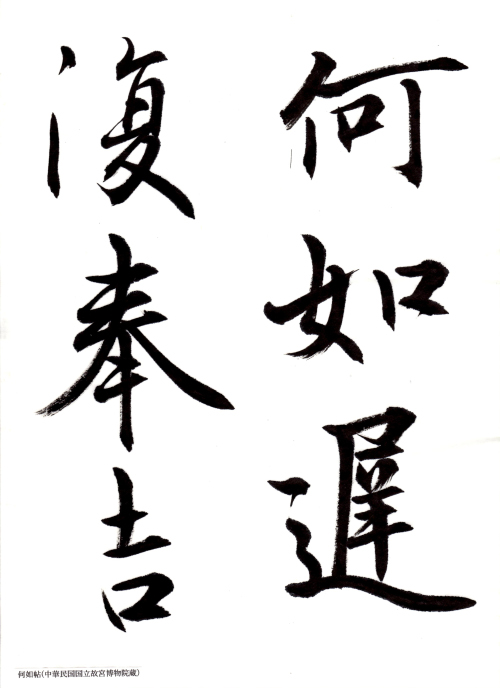 何如遲
復奉吉
何如帖(中華民国国立故宮博物院蔵)